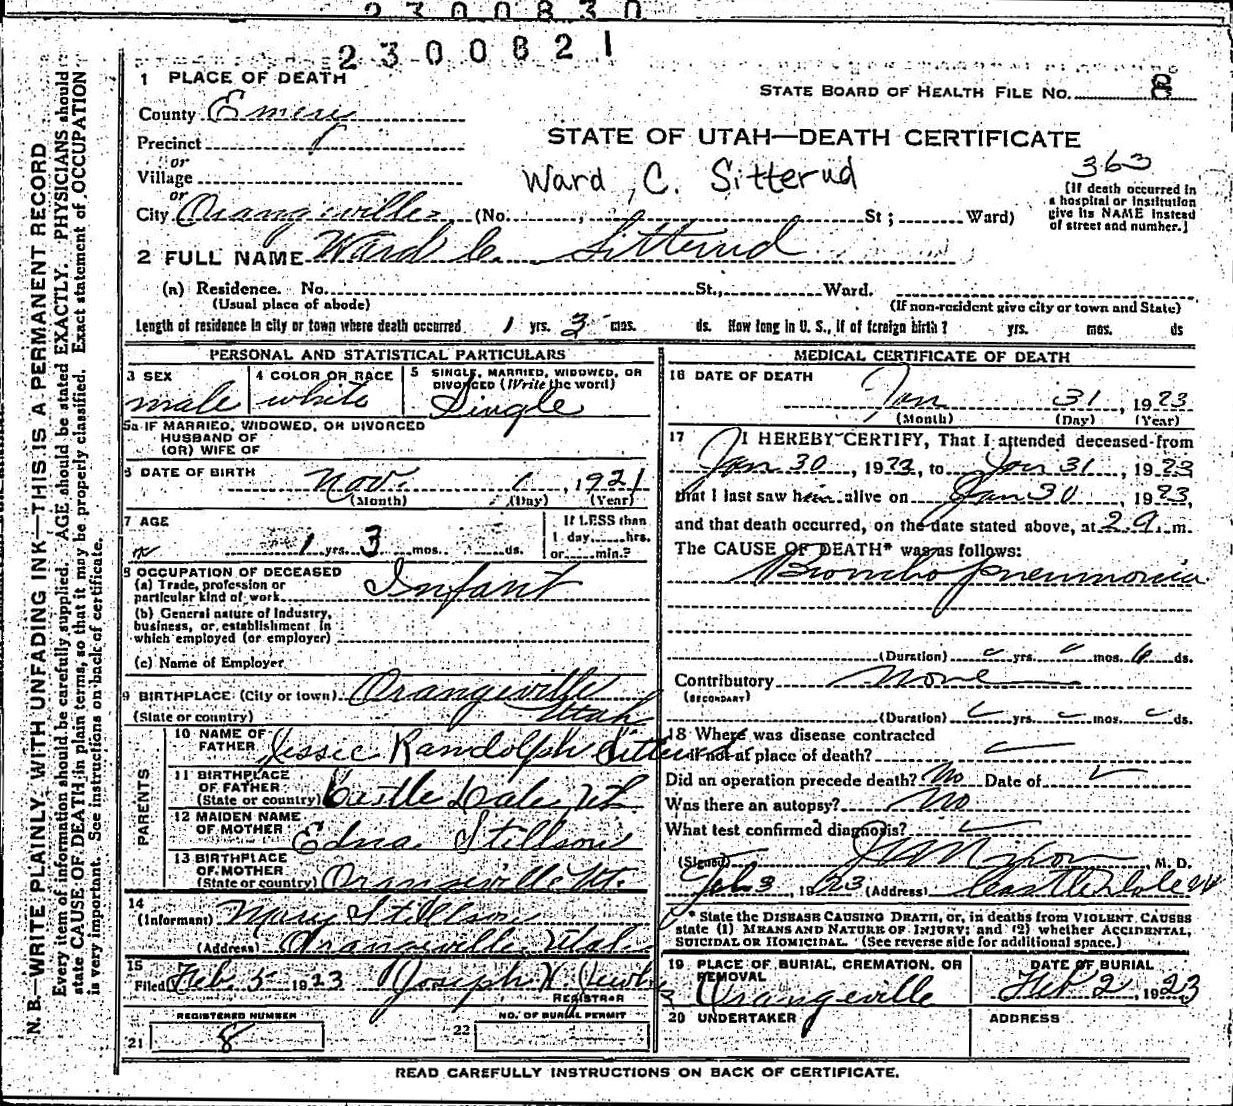 2300830
2300821
1 PLACE OF DEATH
STATE BOARD OF HEALTH FILE NO. 8
County Emery
STATE OF UTAH—DEATH CERTIFICATE
Precinct
or
Village
Ward C. Sitterud
363
[If death occurred in
a hospital or institution
give its NAME instead
of street and number.]
or
City Orangeville (No. , St ; Ward)
2 FULL NAME Ward C. Sitterud
(a) Residence. No. St., Ward.
(Usual place of abode) (If non-resident give city or town and State)
Length of residence in city or town where death occurred 1 yrs. 3 mos. ds. How long in U. S., if of foreign birth? yrs. mos. ds
PERSONAL AND STATISTICAL PARTICULARS
3 SEX male
4 COLOR OR RACE white
5 SINGLE, MARRIED, WIDOWED, OR
DIVORCED (Write the word)
Single
5a IF MARRIED, WIDOWED, OR DIVORCED
HUSBAND OF
(OR) WIFE OF
6 DATE OF BIRTH Nov. 1, 1921
(Month) (Day) (Year)
7 AGE 1 yrs. 3 mos. ds.
If LESS than
1 day, hrs.
or min.?
8 OCCUPATION OF DECEASED
(a) Trade, profession or
particular kind of work Infant
(b) General nature of Industry,
business, or establishment in
which employed (or employer)
(c) Name of Employer
9 BIRTHPLACE (City or town) Orangeville
(State or country) Utah
PARENTS
10 NAME OF
FATHER Jessie Randolph Sitterud
11 BIRTHPLACE
OF FATHER
(State or country) Castle Dale Ut
12 MAIDEN NAME
OF MOTHER Edna Stillson
13 BIRTHPLACE
OF MOTHER
(State or country) Orangeville Ut.
14
(Informant) Mary Stillson
(Address) Orangeville Utah
15
Filed Feb. 5 1923 Joseph H.
REGISTRAR
REGISTERED NUMBER
21 8
NO. OF BURIAL PERMIT
22
MEDICAL CERTIFICATE OF DEATH
16 DATE OF DEATH
Jan 31, 1923
(Month) (Day) (Year)
17 I HEREBY CERTIFY, That I attended deceased from
Jan 30, 1923, to Jan 31, 1923
that I last saw him alive on Jan 30, 1923,
and that death occurred, on the date stated above, at 2 a. m.
The CAUSE OF DEATH* was as follows:
Broncho pneumonia
(Duration) yrs. mos. 6 ds.
Contributory None
(SECONDARY)
(Duration) yrs. mos. ds.
18 Where was disease contracted
if not at place of death?
Did an operation precede death? No Date of
Was there an autopsy? No
What test confirmed diagnosis?
(Signed) Nixon, M. D.
Feb 3, 1923 (Address) Castle Dale
* State the DISEASE CAUSING DEATH, or, in deaths from VIOLENT CAUSES
state (1) MEANS AND NATURE OF INJURY; and (2) whether ACCIDENTAL,
SUICIDAL OR HOMICIDAL. (See reverse side for additional space.)
19 PLACE OF BURIAL, CREMATION, OR
REMOVAL
Orangeville
DATE OF BURIAL
Feb 2, 1923
20 UNDERTAKER
ADDRESS
READ CAREFULLY INSTRUCTIONS ON BACK OF CERTIFICATE.
N. B.—WRITE PLAINLY, WITH UNFADING INK—THIS IS A PERMANENT RECORD
Every item of information should be carefully supplied. AGE should be stated EXACTLY. PHYSICIANS should
state CAUSE OF DEATH in plain terms, so that it may be properly classified. Exact statement of OCCUPATION
is very important. See instructions on back of certificate.